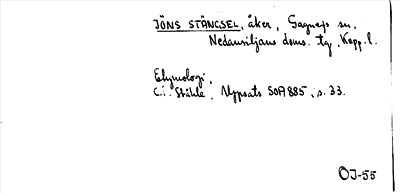 JÖNS STÄNGSEL, åker, Gagnefs sn.
Nedansiljans doms. tg, Kopp. l.
Etymologi.
C.I. Ståhle, Uppsats SOA 885, s. 33.
OJ-55